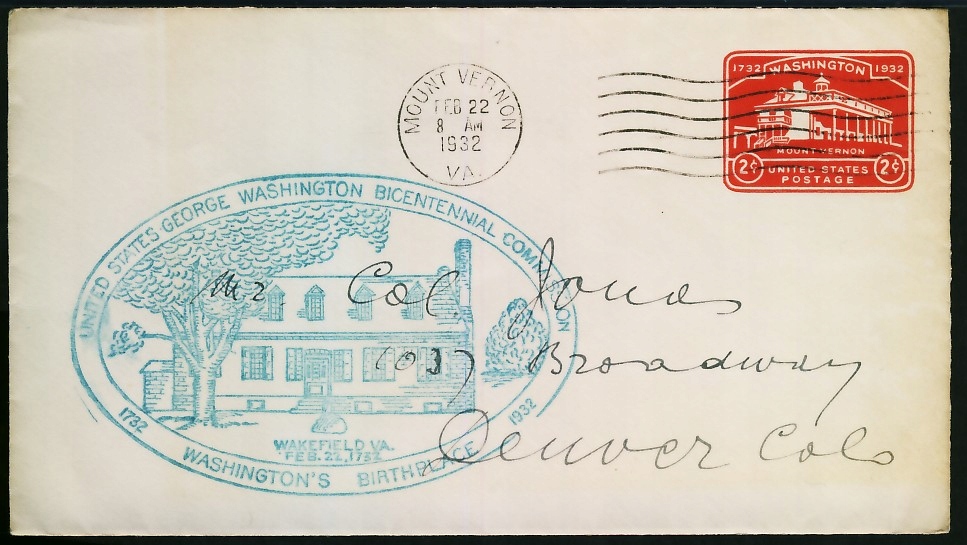 MOUNT VERNON
FEB 22
8 AM
1932
VA.
1732 WASHINGTON 1932
MOUNT VERNON
2¢ UNITED STATES 2¢
POSTAGE
UNITED STATES GEORGE WASHINGTON BICENTENNIAL COMMISSION
Mr. Col. Jones
1037 Broadway
Denver Colo
1732 1932
WAKEFIELD VA.
FEB. 22, 1732
WASHINGTON'S BIRTHPLACE